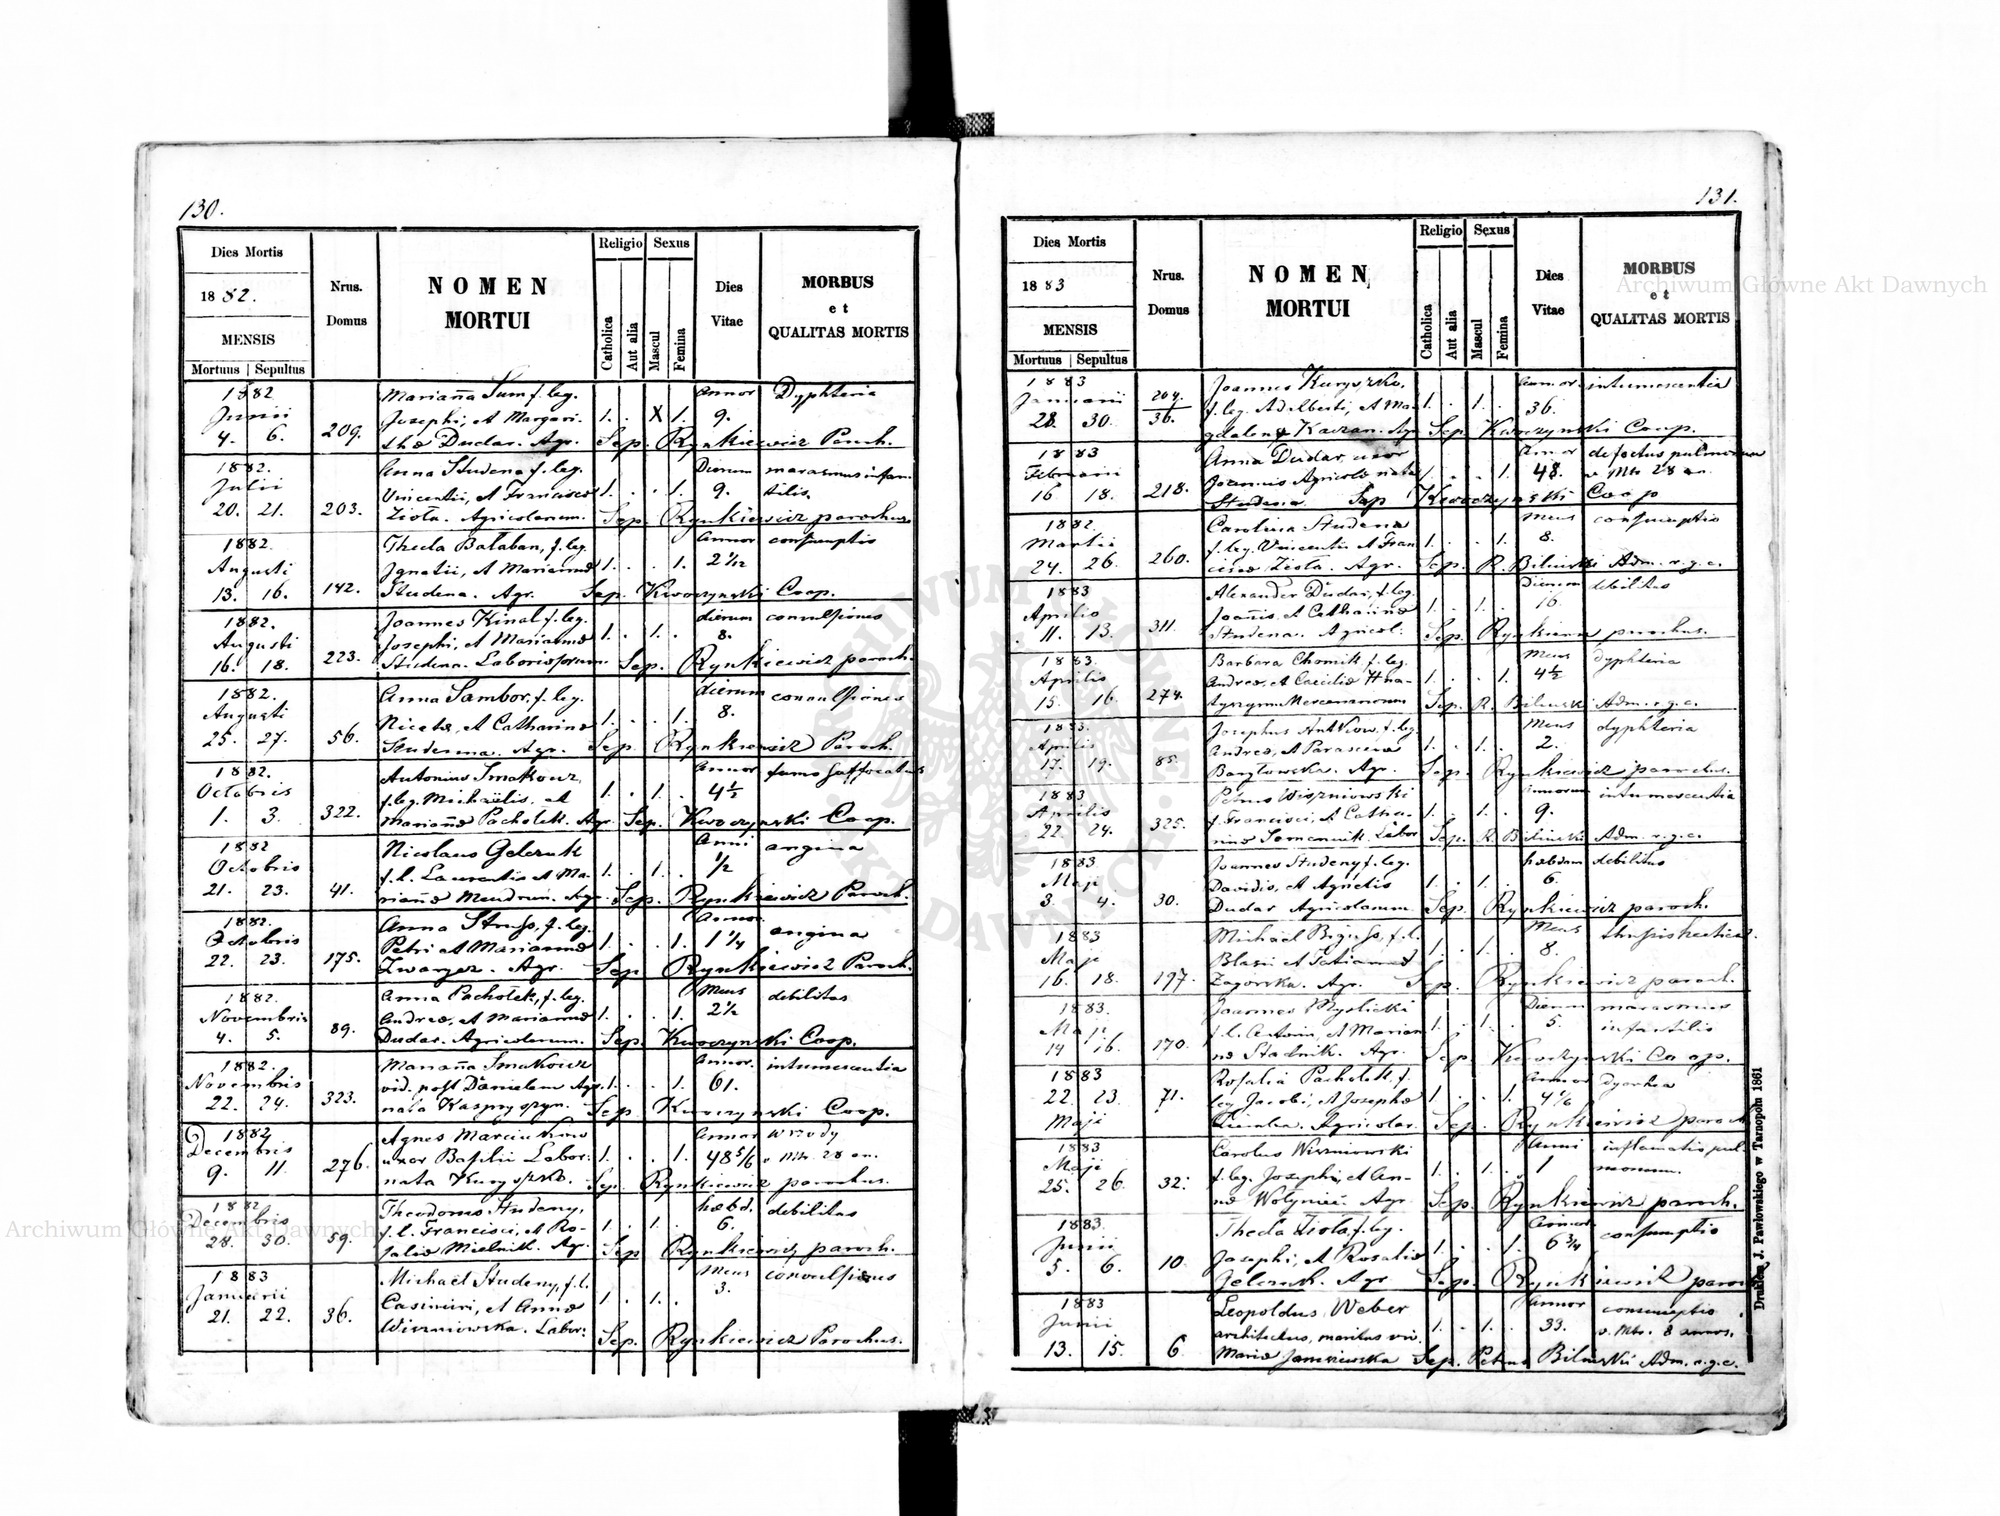 130.
Dies Mortis
1882.
MENSIS
Mortuus Sepultus
Nrus. Domus
NOMEN MORTUI
Religio
Catholica
Aut alia
Sexus
Mascul
Femina
Dies Vitae
MORBUS et QUALITAS MORTIS
1882 Marianna Sum f. leg. Annor Dyphteria
Junii Josephi, et Margari- 1. . X 1. 9.
4. 6. 209. tha Dudar. Agr. Sep. Rynkiewicz Paroch.
1882. Anna Studena f. leg. Dierum marasmus infan-
Julii Vincentii, et Francisca 1. . . 1. 9. tilis
20. 21. 203. Ziola. Agricolarum. Sep. Rynkiewicz parochus
1882. Thecla Balaban, f. leg. Annor consumptio
Augusti Ignatii, et Marianna 1. . . 1. 2 1/12
13. 16. 142. Studena. Agr. Sep. Kwoczynski Coop.
1882. Joannes Kinal f. leg. dierum convulsiones
Augusti Josephi, et Marianna 1. . 1. . 8.
16. 18. 223. Studena. Laboriosorum. Sep. Rynkiewicz paroch.
1882. Anna Sambor, f. leg. dierum convulsiones
Augusti Niceta, et Catharina 1. . . 1. 8.
25. 27. 56. Studenna. Agr. Sep. Rynkiewicz Paroch.
1882. Antonius Smakouz Annor fumo suffocatus
Octobris f. leg. Michaelis, et 1. . 1. . 4 1/2
1. 3. 322. Marianna Pacholek. Agr. Sep. Kwoczynski Coop.
1882 Nicolaus Gelczuk Anni angina
Octobris f. l. Laurentii et Ma- 1. . 1. . 1/2
21. 23. 41. rianna Mendrun. Agr. Sep. Rynkiewicz Paroch.
1882. Anna Struss, f. leg. Annor. angina
Octobris Petri et Marianna 1. . . 1. 1 1/4
22. 23. 175. Zwarycz. Agr. Sep. Rynkiewicz Paroch.
1882. Anna Pacholek, f. leg. Mens debilitas
Novembris Andrea, et Marianna 1. . . 1. 2 1/2
4. 5. 89. Dudar. Agricolarum. Sep. Kwoczynski Coop.
1882. Marianna Smakouz Annor. intumescentia
Novembris vid. post Danielem Agr. 1. . . 1. 61.
22. 24. 323. nata Kaspryszyn. Sep. Kwoczynski Coop.
1882 Agnes Marciukow Annor wrzody
Decembris uxor Basilii Labor: 1. . . 1. 48 5/6 v. Mtr. 28 an.
9. 11. 276. nata Kuryszko. Sep. Rynkiewicz parochus.
1882 Theodorus Studeny, hebd. debilitas
Decembris f. l. Francisci, et Ro- 1. . 1. . 6.
28. 30. 59. salia Mielnik. Agr. Sep. Rynkiewicz paroch.
1883 Michael Studeny, f. l. Mens convulsiones
Januarii Casimiri, et Anna 1. . 1. . 3.
21. 22. 36. Wiszniowska. Labor: Sep. Rynkiewicz Parochus.
131.
Dies Mortis
1883
MENSIS
Mortuus Sepultus
Nrus. Domus
NOMEN MORTUI
Religio
Catholica
Aut alia
Sexus
Mascul
Femina
Dies Vitae
MORBUS et QUALITAS MORTIS
1883 Joannes Kuryszko, Annor intumescentia
Januarii f. leg. Adalberti, et Ma- 1. . 1. . 36.
28. 30. 204. 36. gdalena Kaczan. Agr Sep. Kwoczynski Coop.
1883 Anna Dudar, uxor Annor defectus pulmonum
Februarii Joannis Agricola nata 1. . . 1. 48. v. Mtr 28 an.
16 18. 218. Studena. Sep Kwoczynski Coop
1882. Carolina Studena Mens consumptio
Martii f. leg. Vincentii et Fran- 1. . . 1. 8.
24. 26. 260. cisca Ziola. Agr. Sep. R. Bilinski Adm. r. g. c.
1883 Alexander Dudar, f. leg. Dierum debilitas
Aprilis Joannis, et Catharina 1. . 1. . 16.
11. 13. 311. Studena. Agricol. Sep. Rynkiewicz parochus.
1883. Barbara Chomik f. leg. Mens dyphteria
Aprilis Andrea, et Caecilia Hna- 1. . . 1. 4 1/2
15. 16. 274. Sep. R. Bilinski Adm. r. g. c.
1883. Josephus Antkiow, f. leg. Mens dyphteria
Aprilis Andrea, et Parascewa 1. . 1. . 2.
17. 19. 85. Barylowska. Agr. Sep. Rynkiewicz parochus.
1883 Petrus Wiszniowski Annorum intumescentia
Aprilis f. Francisci, et Catha- 1. . 1. . 9.
22. 24. 325. rina Semenink. Labor Sep. R. Bilinski Adm. r. g. c.
1883 Joannes Studeny f. leg. hebdom debilitas
Maji Davidis, et Agnetis 1. . 1. . 6.
3. 4. 30. Dudar Agricolarum Sep. Rynkiewicz paroch.
1883 Michael f. l. Mens
Maji Blasii et Tatianna 1. . 1. . 8.
16. 18. 197. Zagorska. Agr. Sep. Rynkiewicz paroch.
1883. Joannes Myslicki Dierum marasmus
Maji f. l. Antonii, et Marian- 1. . 1. . 5. infantilis
14 16. 170. na Stadnik. Agr. Sep. Kwoczynski Coop.
1883 Rosalia Pacholek f. Annor dyarhea
22. 23. 71. leg. Jacobi, et Josepha 1. . . 1. 4 1/6
Maji Agricolar. Sep. Rynkiewicz paroch
1883 Carolus Wiszniowski Anni inflamatio pul-
Maji f. leg. Josephi, et An- 1. . 1. . 1 monum.
25. 26. 32. na Wolyniec. Agr. Sep. Rynkiewicz paroch.
1883. Thecla Ziola, f. leg. Annor consumptio
Junii Josephi, et Rosalia 1. . . 1. 6 3/4
5. 6. 10. Gelczuk. Agr Sep. Rynkiewicz paroch
1883 Leopoldus Weber Annor consumptio
Junii architectus, maritus vii. 1. . 1. . 33. v. Mtr. 8 annos.
13. 15. 6. Maria Janiszewska Sep. Petrus Bilinski Adm. r. g. c.
Drukiem J. Pawłowskiego w Tarnopolu 1861
Archiwum Główne Akt Dawnych
Archiwum Główne Akt Dawnych
ARCHIWUM GŁÓWNE AKT DAWNYCH